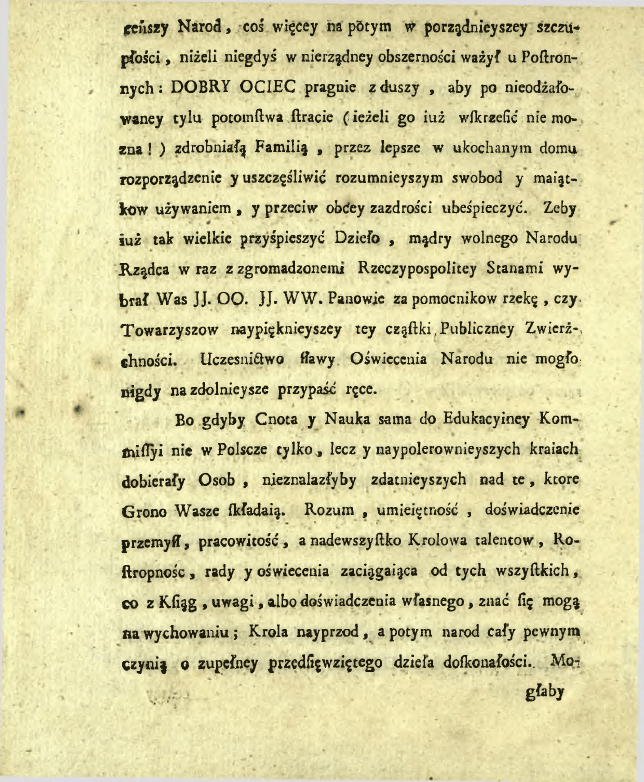 ceńszy Narod, coś więcey na potym w porządnieyszey szczu-
płości, niżeli niegdyś w nierządney obszerności ważył u Poſtron-
nych: DOBRY OCIEC pragnie z duszy, aby po nieodżało-
waney tylu potomſtwa ſtracie (ieżeli go iuż wſkrzeſić nie mo-
żna!) zdrobniałą Familią, przez lepsze w ukochanym domu
rozporządzenie y uszczęśliwić rozumnieyszym swobod y maiąt-
kow używaniem, y przeciw obcey zazdrości ubeśpieczyć. Zeby
iuż tak wielkie przyśpieszyć Dzieło, mądry wolnego Narodu
Rządca w raz z zgromadzonemi Rzeczypospolitey Stanami wy-
brał Was JJ. OO. JJ. WW. Panowie za pomocnikow rzekę, czy
Towarzyszow naypięknieyszey tey cząſtki Publiczney Zwierz-
chności. Uczesnictwo ſławy Oświecenia Narodu nie mogło
nigdy na zdolnieysze przypaść ręce.
Bo gdyby Cnota y Nauka sama do Edukacyiney Kom-
miſſyi nie w Polscze tylko, lecz y naypolerownieyszych kraiach
dobierały Osob, nieznalazłyby zdatnieyszych nad te, ktore
Grono Wasze ſkładaią. Rozum, umieiętność, doświadczenie
przemyſł, pracowitość, a nadewszyſtko Krolowa talentow, Ro-
ſtropność, rady y oświecenia zaciągaiąca od tych wszyſtkich,
co z Kſiąg, uwagi, albo doświadczenia własnego, znać ſię mogą
na wychowaniu; Krola nayprzod, a potym narod cały pewnym
czynią o zupełney przedſięwziętego dzieła doſkonałości. Mo-
głaby